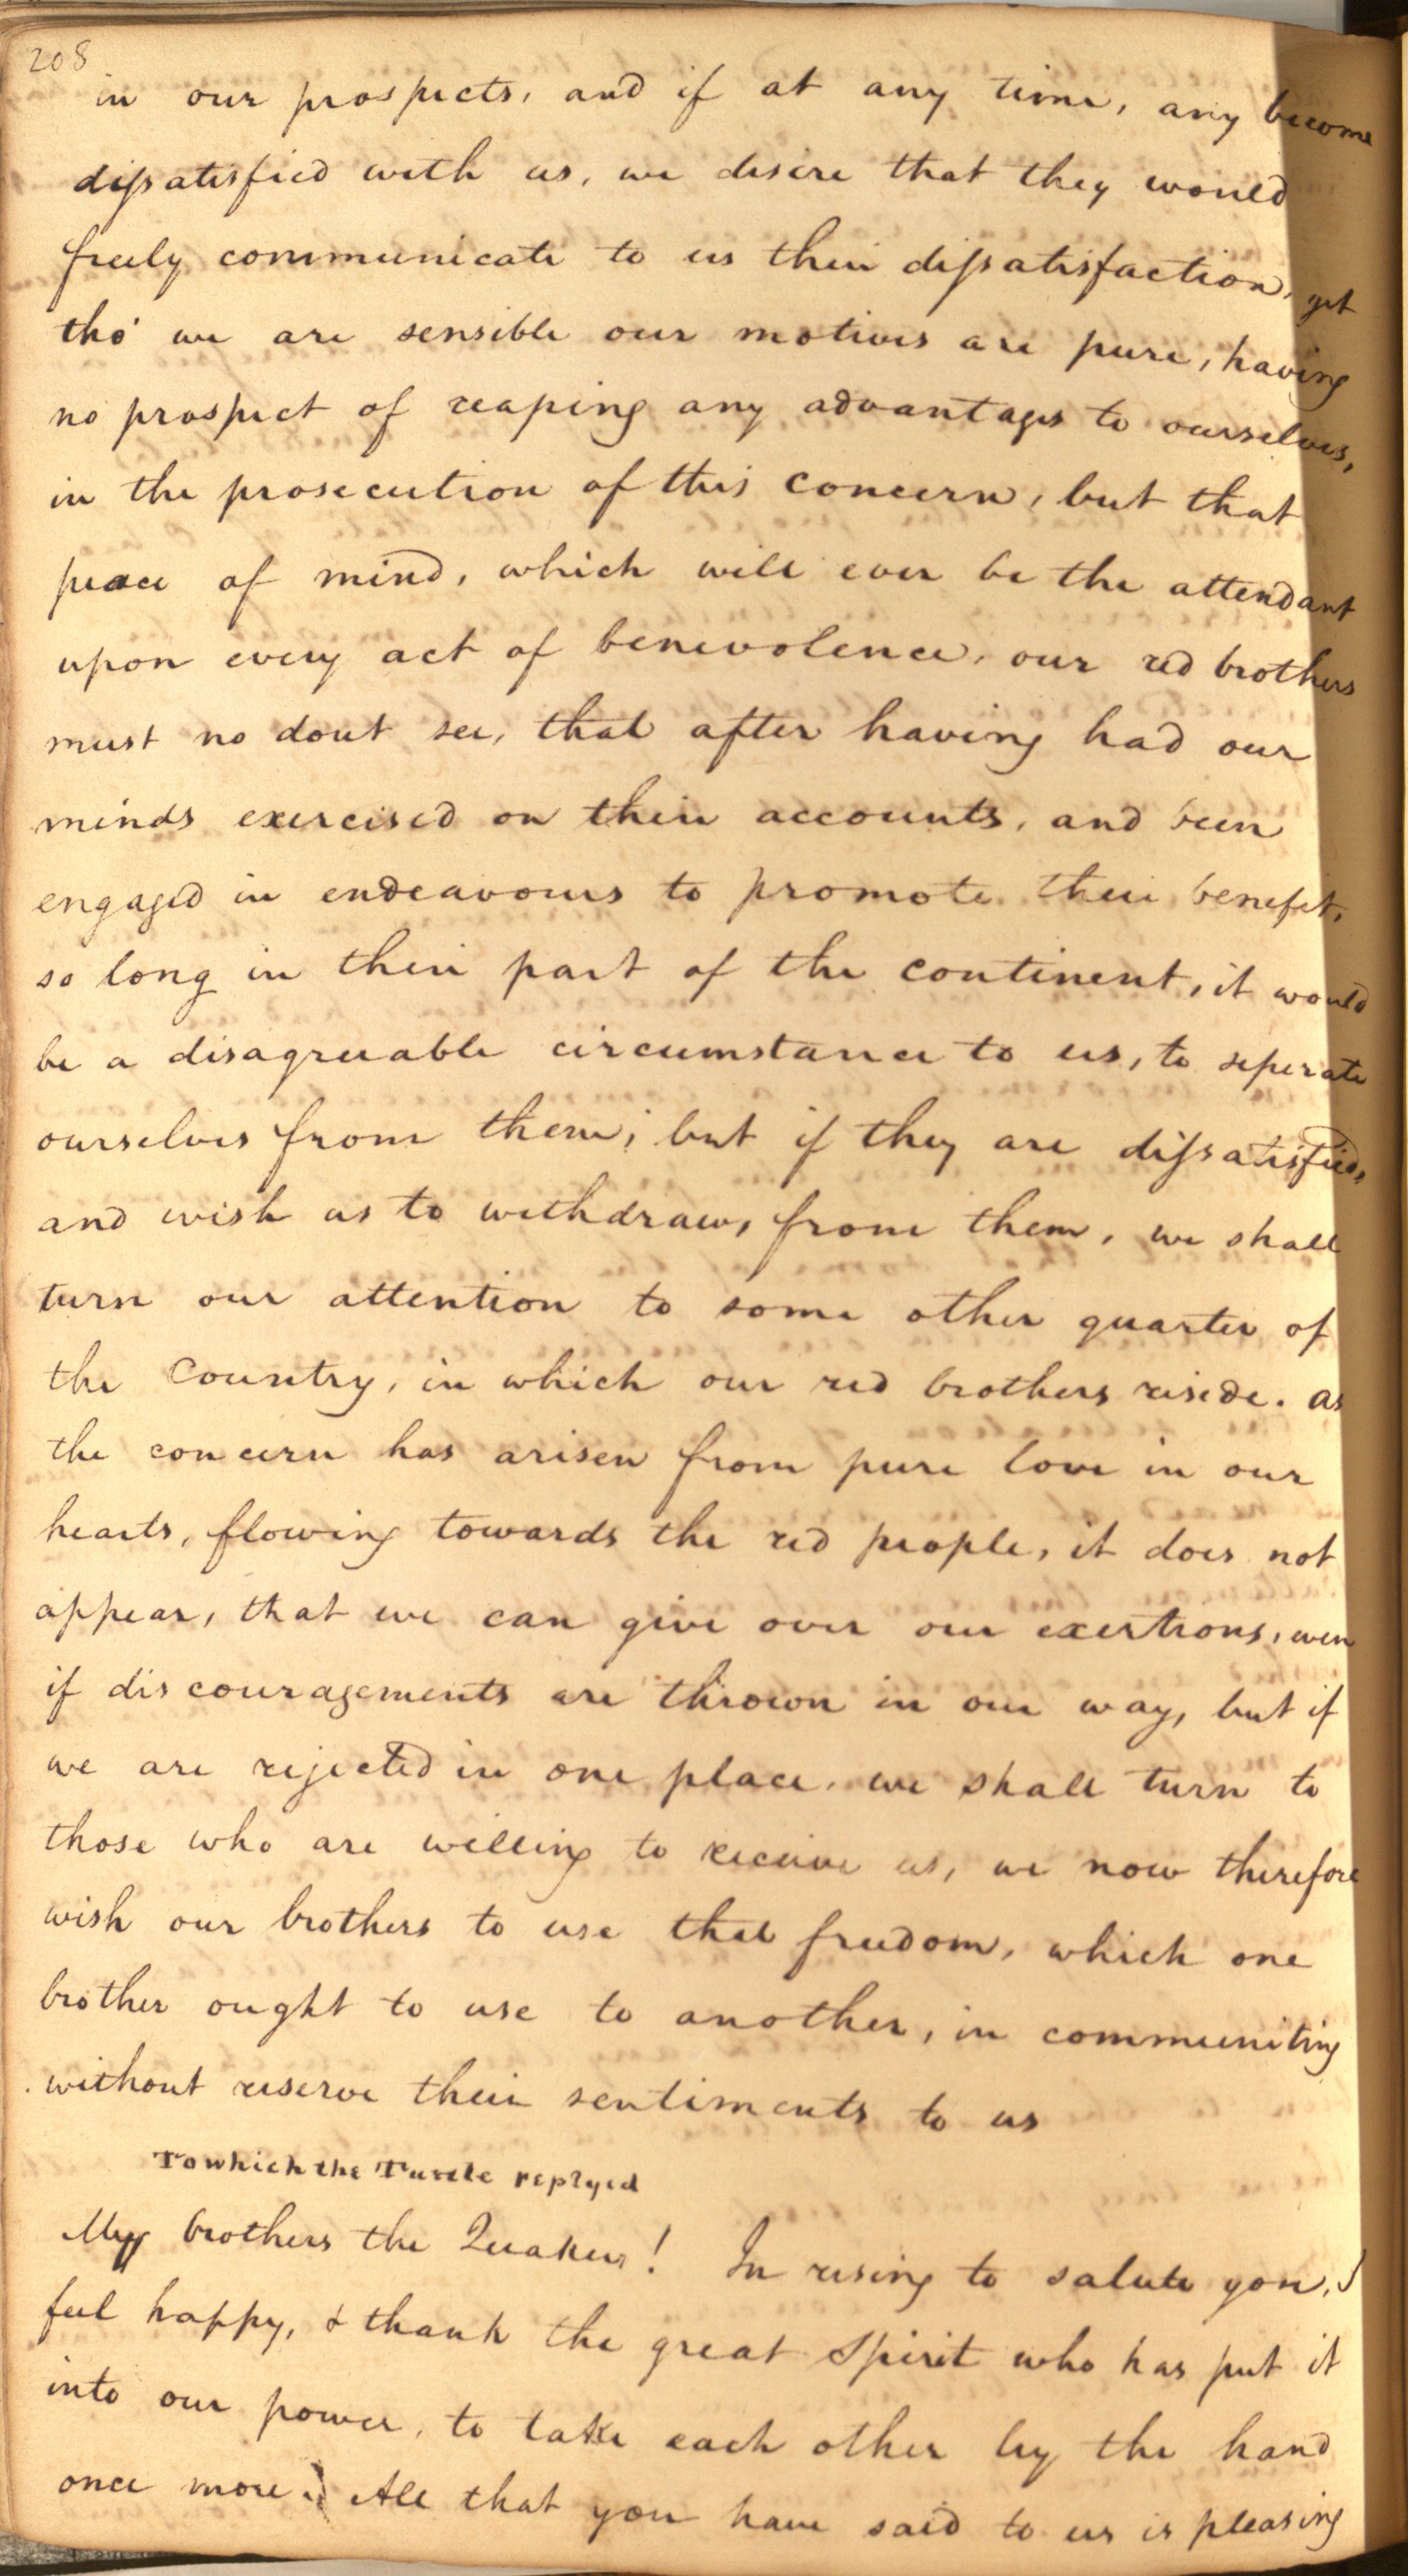 208
in our prospects, and if at any time, any become
dissatisfied with us, we desire that they would
freely communicate to us their dissatisfaction, yet
tho' we are sensible our motives are pure, having
no prospect of reaping any advantages to ourselves,
in the prosecution of this concern, but that
peace of mind, which will ever be the attendant
upon every act of benevolence, our red brothers
must no dout see, that after having had our
minds exercised on their accounts, and been
engaged in endeavours to promote their benefit,
so long in their part of the continent, it would
be a disagreeable circumstance to us, to seperate
ourselves from them; but if they are dissatisfied,
and wish us to withdraw, from them, we shall
turn our attention to some other quarter of
the Country, in which our red brothers reside. as
the concern has arisen from pure love in our
hearts, flowing towards the red people, it does not
appear, that we can give over our exertions, even
if discouragements are thrown in our way, but if
we are rejected in one place, we shall turn to
those who are willing to receive us, we now therefore
wish our brothers to use that freedom, which one
brother ought to use to another, in communiting
without reserve their sentiments to us
To which the Turtle replyed
My brothers the Quakers! In rising to salute you, I
feel happy, & thank the great Spirit who has put it
into our power, to take each other by the hand
once more. All that you have said to us is pleasing